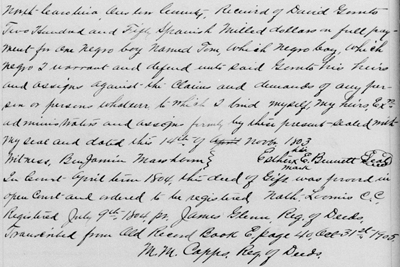 North Carolina, Onslow County, Received of David Gornto
Two Hundred and Fifty Spanish Milled dollars in full pay-
ment for one negro boy named Tim, which negro boy, which
negro I warrant and defend unto said Gornto his heirs
and assigns against the Claims and demands of any per-
son or persons whatever to which I bind myself, my heirs, Ex
administrators and assigns firmly by these present sealed with
my seal and dated this 14th of Novbr 1803
Witness, Benjamin Marshom Esther E Bennett Seal
her
mark
In Court April term 1804, this deed of Gift was proved in
open Court and ordered to be registered Nath. Loomis C.C.
Registered July 9th 1804, pr. James Glenn, Reg. of Deeds
Transcribed from Old Record Book E, page 40, Oct 31st 1905.
M. M. Capps, Reg of Deeds.